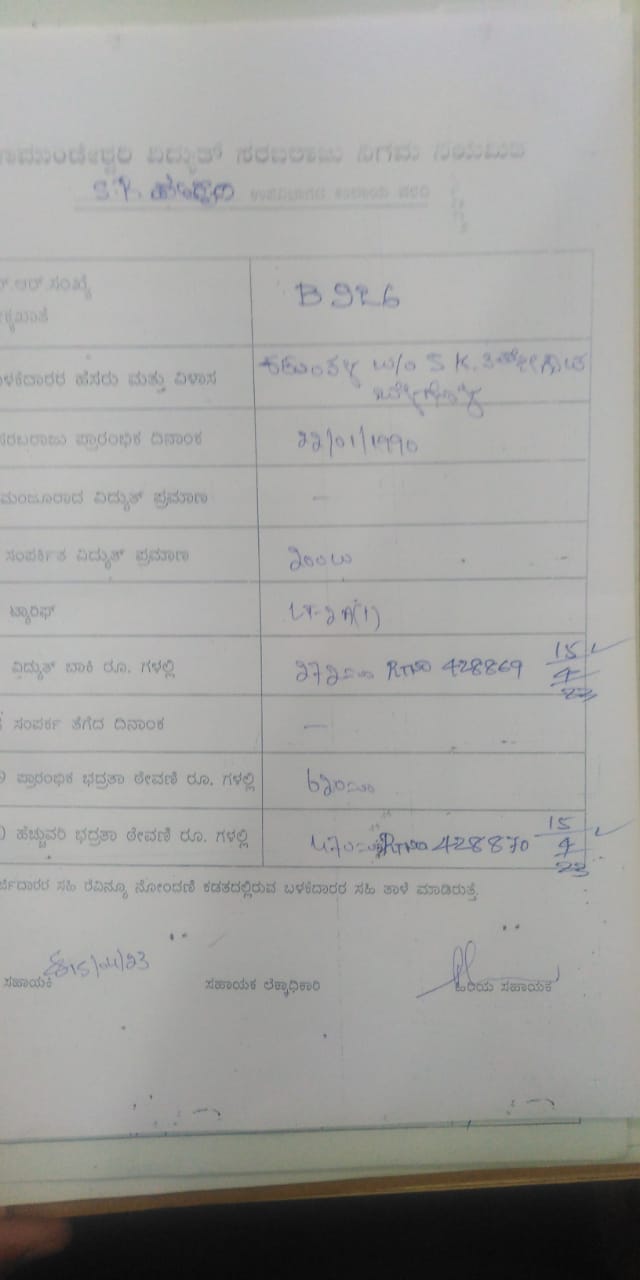 ಾಮುಂಡೇಶ್ವರಿ ವಿದ್ಯುತ್ ಸರಬರಾಜು ನಿಗಮ ನಿಯಮಿತ
S.K.
ರ್.ಆರ್.ಸಂಖ್ಯೆ B 926
ಬಳಕೆದಾರರ ಹೆಸರು ಮತ್ತು ವಿಳಾಸ W/o S K.
ಸರಬರಾಜು ಪ್ರಾರಂಭಿಕ ದಿನಾಂಕ 22/01/1990
ಮಂಜೂರಾದ ವಿದ್ಯುತ್ ಪ್ರಮಾಣ –
ಸಂಪರ್ಕಿತ ವಿದ್ಯುತ್ ಪ್ರಮಾಣ 200W
ಟ್ಯಾರಿಫ್ LT-2A(1)
ವಿದ್ಯುತ್ ಬಾಕಿ ರೂ. ಗಳಲ್ಲಿ 272=00 RTNO 428869 15/4/23
ಸಂಪರ್ಕ ತೆಗೆದ ದಿನಾಂಕ –
ಪ್ರಾರಂಭಿಕ ಭದ್ರತಾ ಠೇವಣಿ ರೂ. ಗಳಲ್ಲಿ 620=00
) ಹೆಚ್ಚುವರಿ ಭದ್ರತಾ ಠೇವಣಿ ರೂ. ಗಳಲ್ಲಿ 470=00 RTNO 428870 15/4/23
ರ್ಜಿದಾರರ ಸಹಿ ರೆವಿನ್ಯೂ ನೋಂದಣಿ ಕಡತದಲ್ಲಿರುವ ಬಳಕೆದಾರರ ಸಹಿ ತಾಳೆ ಮಾಡಿರುತ್ತೆ.
15/04/23
ಸಹಾಯಕ ಸಹಾಯಕ ಲೆಕ್ಕಾಧಿಕಾರಿ ಹಿರಿಯ ಸಹಾಯಕ